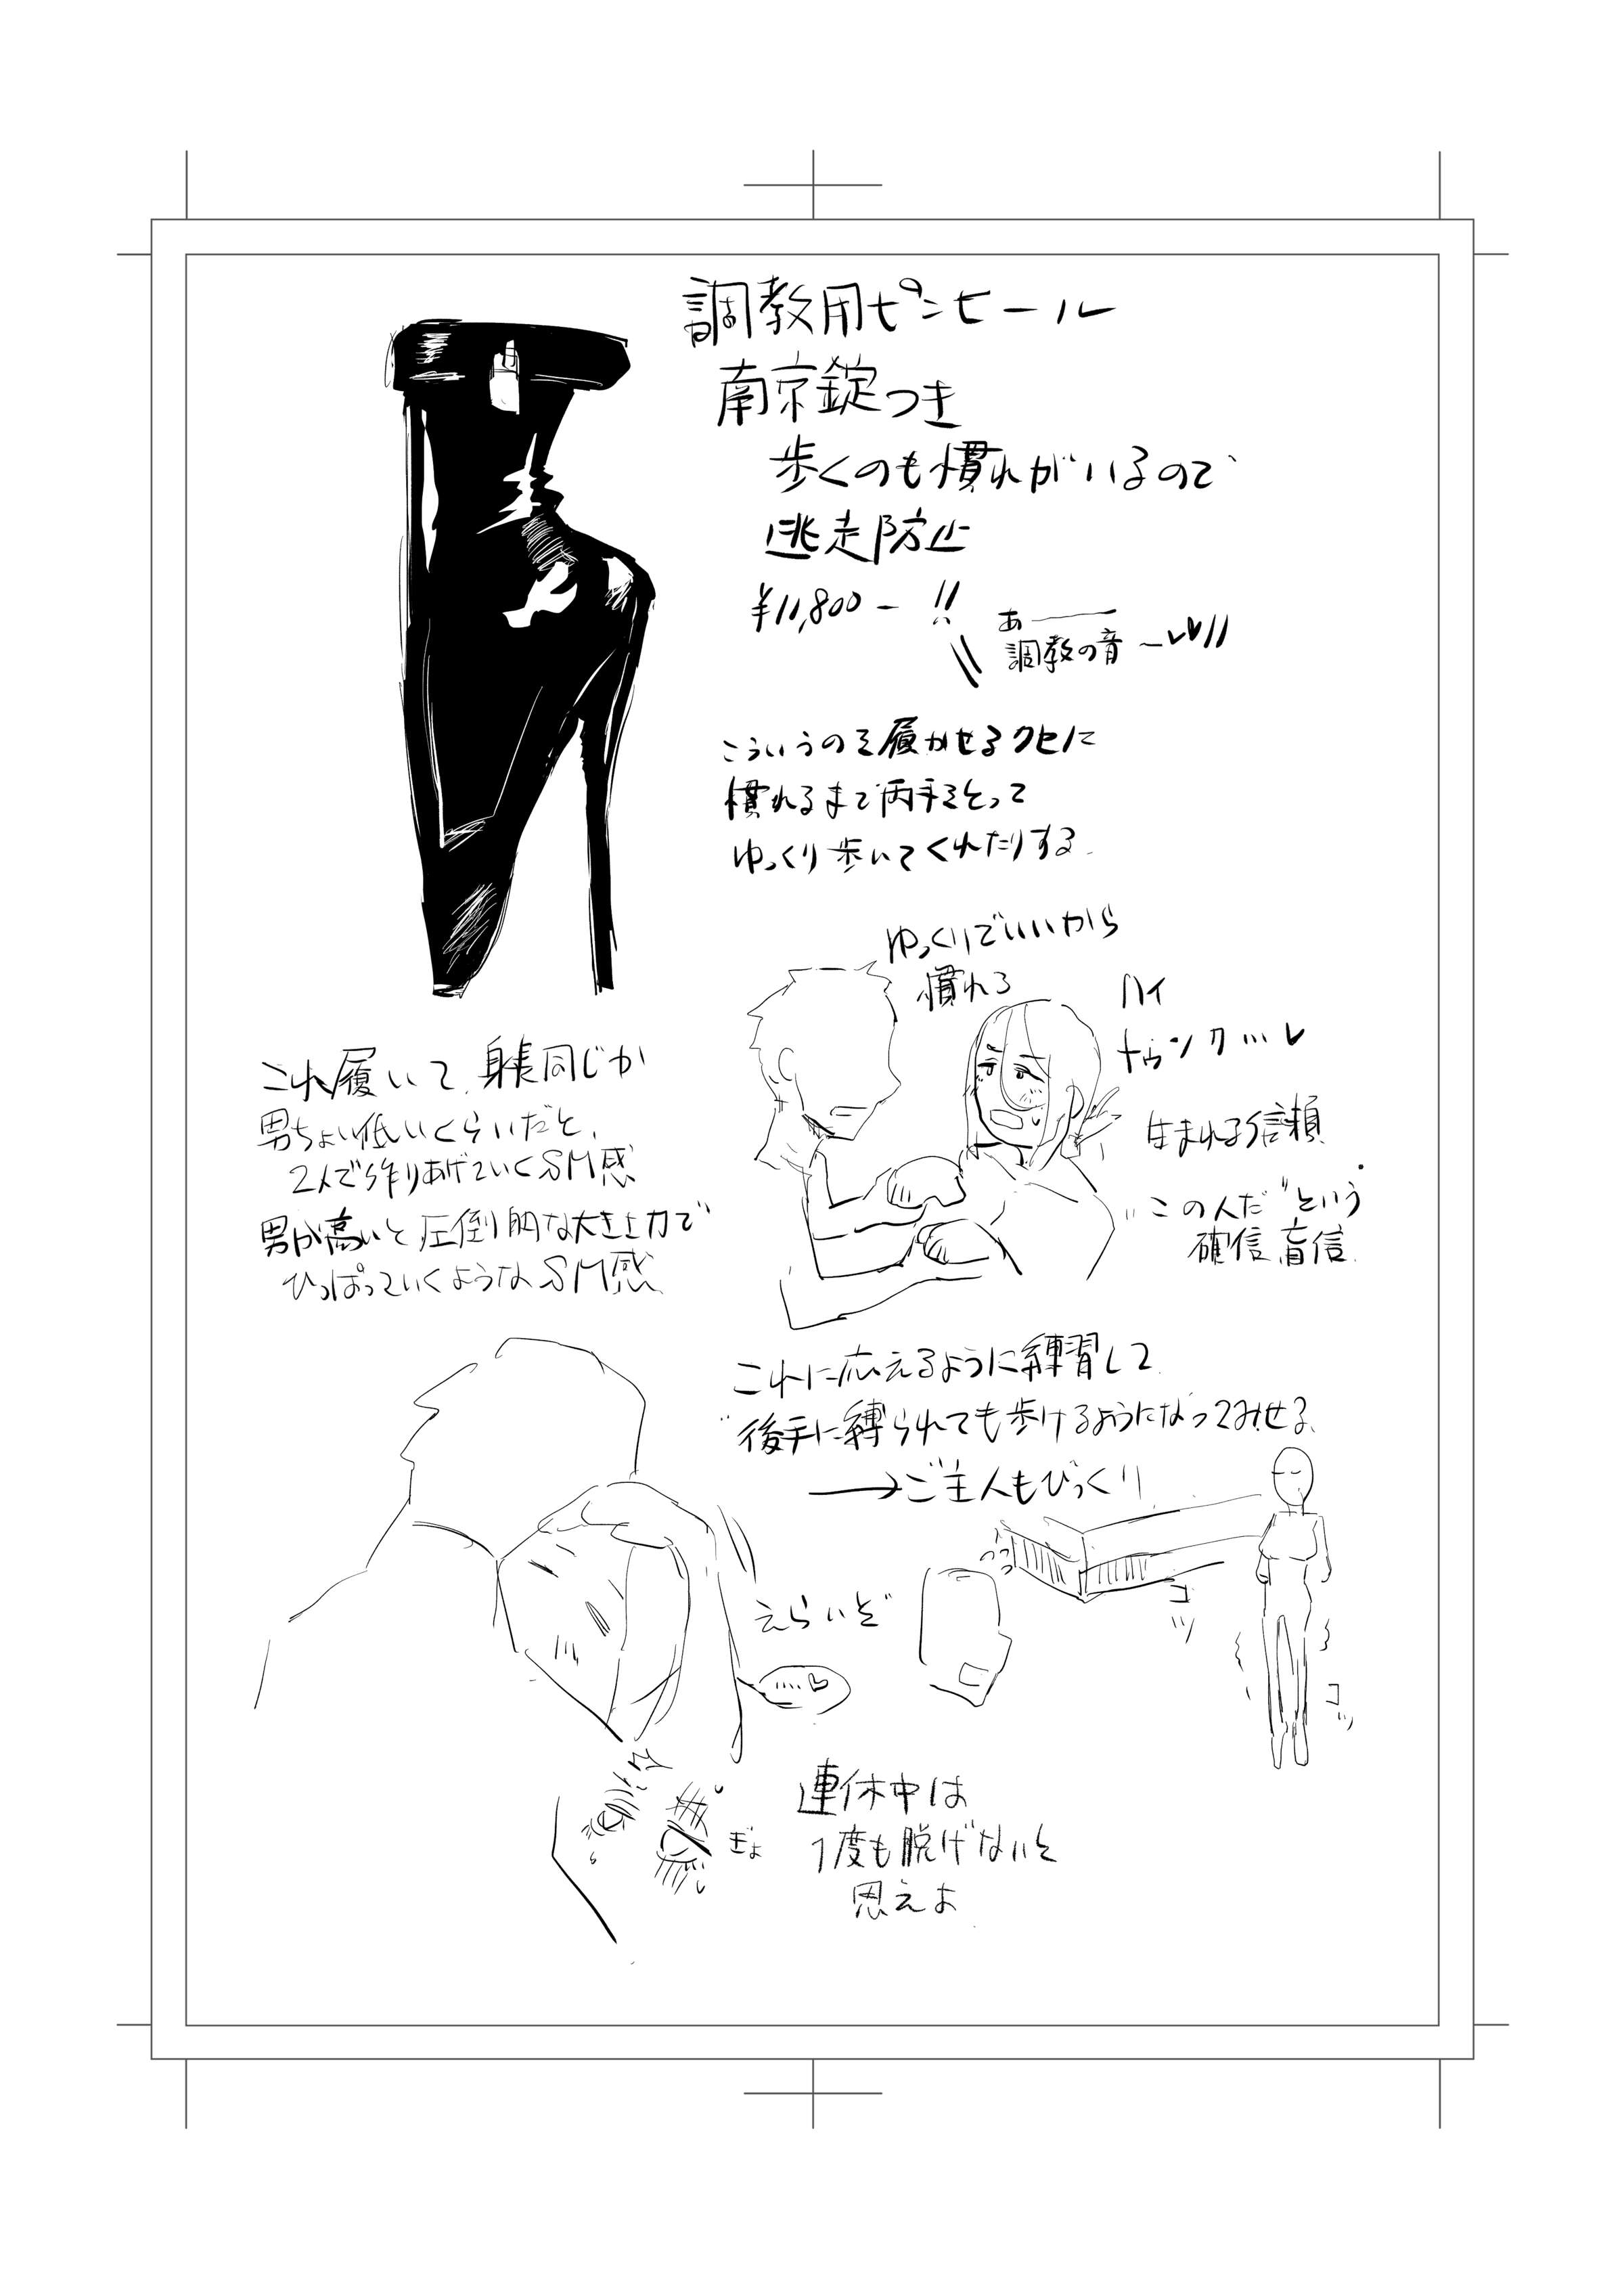 調教用ピンヒール
南京錠つき
歩くのも慣れがいるので
逃走防止
¥11,800-!!
あ――
調教の音~♥♥!!
こういうのを履かせるクセに
慣れるまで両手をとって
ゆっくり歩いてくれたりする.
ゆっくりでいいから
慣れろ
ハイ
トゥンク…♥
生まれる信頼
"この人だ"という
確信、盲信.
これ履いて、身長同じか
男ちょい低いくらいだと、
2人で作りあげていくSM感
男が高いと圧倒的な大きな力で
ひっぱっていくようなSM感、
これに応えるように練習して
後手に縛られても歩けるようになってみせる、
→ご主人もびっくり
コツ
コツ
えらいぞ
....♡
ぎょ
連休中は
1度も脱げないと
思えよ